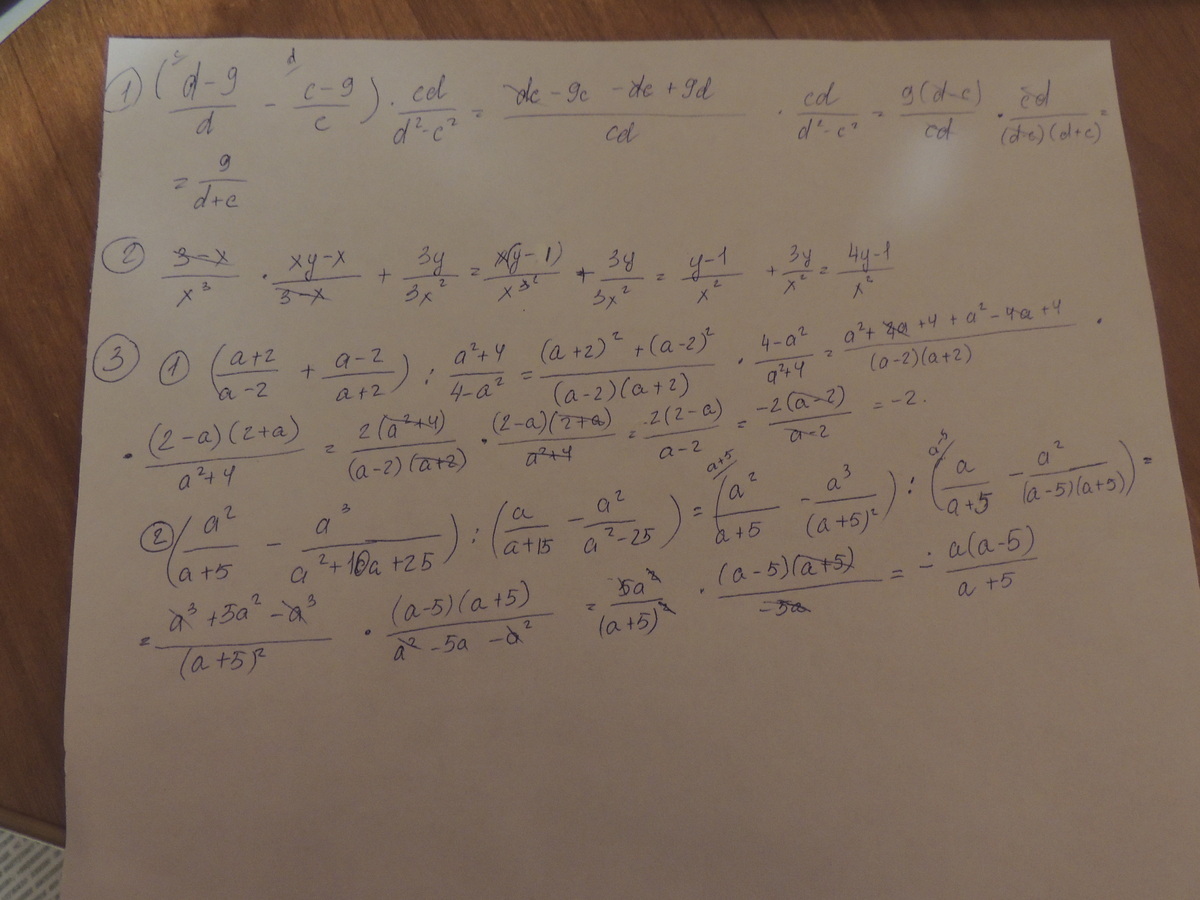 1) (ᶜ (d-9)/d - ᵈ (c-9)/c) · cd/(d²-c²) = (dc - 9c - dc + 9d)/cd · cd/(d²-c²) = 9(d-c)/cd · cd/((d-c)(d+c)) =
= 9/(d+c)
2) (3-x)/x³ · (xy-x)/(3-x) + 3y/3x² = x(y-1)/x³² + 3y/3x² = (y-1)/x² + 3y/x² = (4y-1)/x²
3) 1) ((a+2)/(a-2) + (a-2)/(a+2)) : (a²+4)/(4-a²) = ((a+2)² + (a-2)²)/((a-2)(a+2)) · (4-a²)/(a²+4) = (a²+4a+4+a²-4a+4)/((a-2)(a+2)) ·
· (2-a)(2+a)/(a²+4) = 2(a²+4)/((a-2)(a+2)) · (2-a)(2+a)/(a²+4) = 2(2-a)/(a-2) = -2(a-2)/(a-2) = -2.
2) (a²/(a+5) - a³/(a²+10a+25)) : (a/(a+15) - a²/(a²-25)) = (ᵃ⁺⁵ a²/(a+5) - a³/(a+5)²) : (a/(a+5) - a²/((a-5)(a+5))) =
= (a³+5a²-a³)/(a+5)² · (a-5)(a+5)/(a²-5a-a²) = 5a²/(a+5)² · (a-5)(a+5)/(-5a) = - a(a-5)/(a+5)